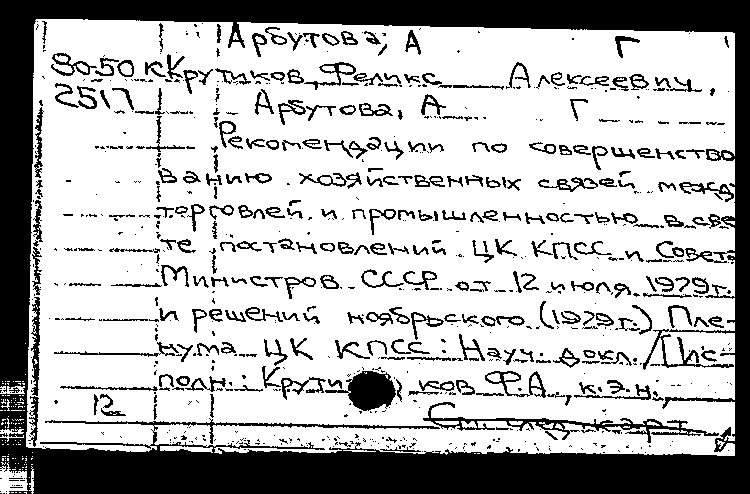 Арбутова, А Г
80-50 К Крутиков, Феликс Алексеевич,
2517 Арбутова, А Г
Рекомендации по совершенство
ванию хозяйственных связей межд
торговлей и промышленностью в све
те постановлений ЦК КПСС и Совета
Министров СССР от 12 июля 1979г.
и решений ноябрьского (1979г.) Пле-
нума ЦК КПСС: Науч. докл. /[Ис-
полн.: Крути ков Ф.А, к.э.н.,
12 См. след. карт